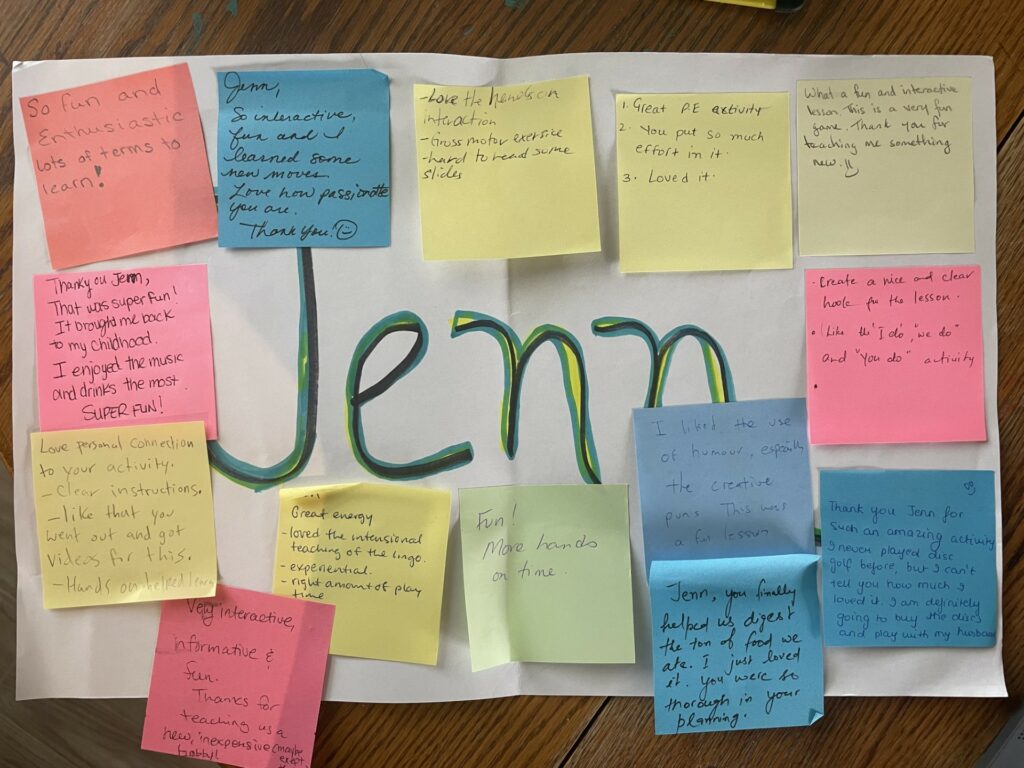 So fun and
Enthusiastic
lots of terms to
learn!
Jenn,
So interactive,
fun and I
learned some
new moves.
Love how passionate
you are.
Thank you!
-Love the hands on
interaction
-Gross motor exersice
-hard to read some
slides
1. Great P.E activity
2. You put so much
effort in it.
3. Loved it.
What a fun and interactive
lesson. This is a very fun
game. Thank you for
teaching me something
new.
Thankyou Jenn,
That was super fun!
It brought me back
to my childhood.
I enjoyed the music
and drinks the most.
SUPER FUN!
Jenn
- Create a nice and clear
hook for the lesson.
I like the "I do", "we do"
and "you do" activity
Love personal connection
to your activity.
- Clear instructions.
- like that you
went out and got
videos for this.
- Hands on helped
Great energy
- loved the intensional
teaching of the lingo.
- experiential.
- right amount of play
time
Fun!
More hands
on time.
I liked the use
of humour, especially
the creative
puns. This was
a fun lesson
Thank you Jenn for
such an amazing activity
I never played disc
golf before, but I can't
tell you how much I
loved it. I am definitely
going to buy the discs
and play with my husband
Very interactive,
informative &
fun.
Thanks for
teaching us a
new, inexpensive (maybe
hobby!
Jenn, you finally
helped us digest
the ton of food we
ate. I just loved
it. you were so
thorough in your
planning.